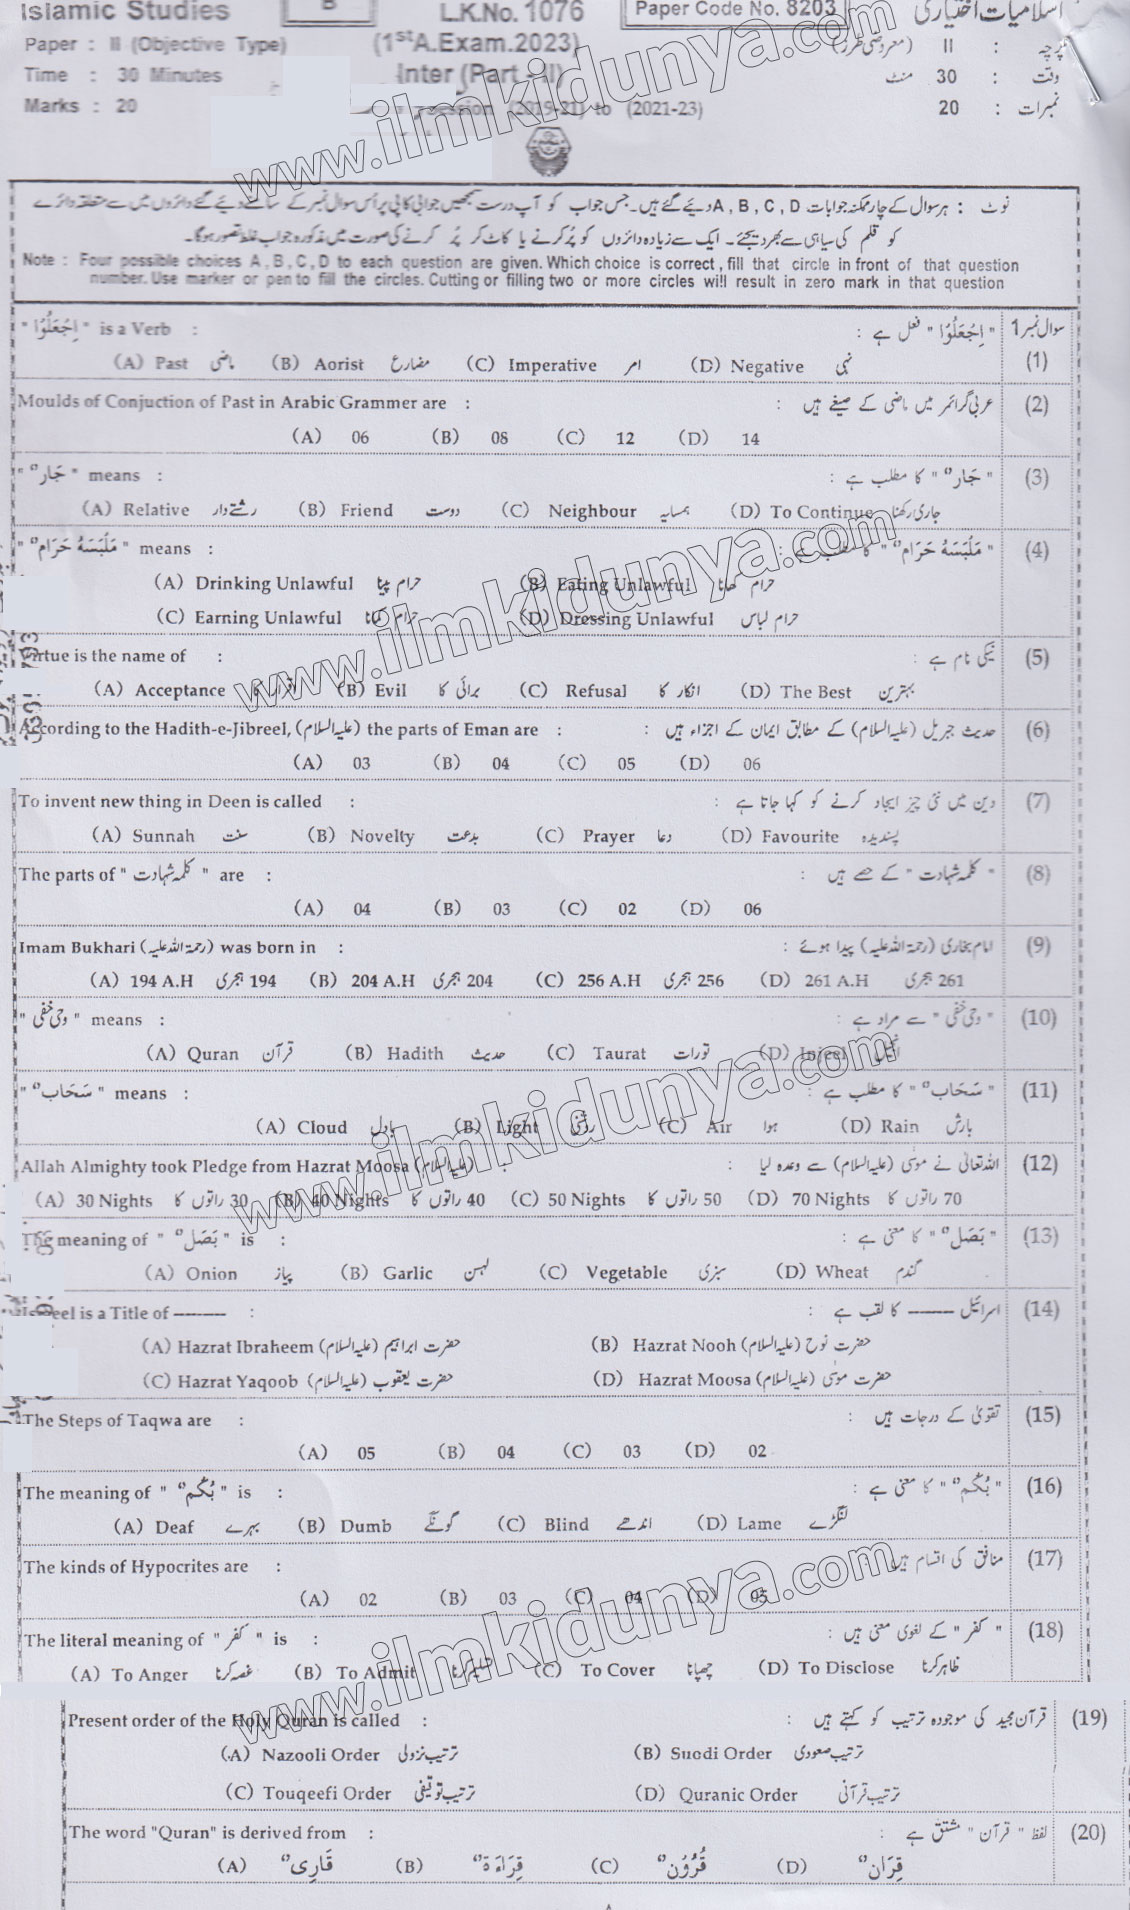 Islamic Studies B L.K.No. 1076 Paper Code No. 8203 اسلامیات اختیاری
Paper : II (Objective Type) (1st A.Exam.2023) پرچہ : II (معروضی طرز)
Time : 30 Minutes Inter (Part - II) وقت : 30 منٹ
Marks : 20 session (2019-21) to (2021-23) نمبرات : 20
نوٹ : ہر سوال کے چار ممکنہ جوابات A , B , C , D دیئے گئے ہیں۔ جس جواب کو آپ درست سمجھیں جوابی کاپی پر اُس سوال نمبر کے سامنے دیئے گئے دائروں میں سے متعلقہ دائرے
کو قلم کی سیاہی سے بھر دیجئے۔ ایک سے زیادہ دائروں کو پُر کرنے یا کاٹ کر پُر کرنے کی صورت میں مذکورہ جواب غلط تصور ہوگا۔
Note : Four possible choices A , B , C , D to each question are given. Which choice is correct , fill that circle in front of that question
number. Use marker or pen to fill the circles. Cutting or filling two or more circles will result in zero mark in that question
" اِجْعَلُوْا " is a Verb : " اِجْعَلُوْا " فعل ہے : سوال نمبر 1
(A) Past ماضی (B) Aorist مضارع (C) Imperative امر (D) Negative نہی (1)
Moulds of Conjuction of Past in Arabic Grammer are : عربی گرائمر میں ماضی کے صیغے ہیں : (2)
(A) 06 (B) 08 (C) 12 (D) 14
" جَارٌ " means : " جَارٌ " کا مطلب ہے : (3)
(A) Relative رشتے دار (B) Friend دوست (C) Neighbour ہمسایہ (D) To Continue جاری رکھنا
" مَلْبَسَهٗ حَرَامٌ " means : " مَلْبَسَهٗ حَرَامٌ " کا مطلب ہے : (4)
(A) Drinking Unlawful حرام پینا (B) Eating Unlawful حرام کھانا
(C) Earning Unlawful حرام کمانا (D) Dressing Unlawful حرام لباس
Virtue is the name of : نیکی نام ہے : (5)
(A) Acceptance اقرار کا (B) Evil برائی کا (C) Refusal انکار کا (D) The Best بہترین
According to the Hadith-e-Jibreel, (علیہ السلام) the parts of Eman are : حدیث جبریل (علیہ السلام) کے مطابق ایمان کے اجزاء ہیں : (6)
(A) 03 (B) 04 (C) 05 (D) 06
To invent new thing in Deen is called : دین میں نئی چیز ایجاد کرنے کو کہا جاتا ہے : (7)
(A) Sunnah سنت (B) Novelty بدعت (C) Prayer دعا (D) Favourite پسندیدہ
The parts of " کلمہ شہادت " are : " کلمہ شہادت " کے حصے ہیں : (8)
(A) 04 (B) 03 (C) 02 (D) 06
Imam Bukhari (رحمۃ اللہ علیہ) was born in : امام بخاری (رحمۃ اللہ علیہ) پیدا ہوئے : (9)
(A) 194 A.H 194 ہجری (B) 204 A.H 204 ہجری (C) 256 A.H 256 ہجری (D) 261 A.H 261 ہجری
" وحی خفی " means : " وحی خفی " سے مراد ہے : (10)
(A) Quran قرآن (B) Hadith حدیث (C) Taurat تورات (D) Injeel انجیل
" سَحَابٌ " means : " سَحَابٌ " کا مطلب ہے : (11)
(A) Cloud بادل (B) Light روشنی (C) Air ہوا (D) Rain بارش
Allah Almighty took Pledge from Hazrat Moosa (علیہ السلام) : اللہ تعالیٰ نے موسٰی (علیہ السلام) سے وعدہ لیا : (12)
(A) 30 Nights 30 راتوں کا (B) 40 Nights 40 راتوں کا (C) 50 Nights 50 راتوں کا (D) 70 Nights 70 راتوں کا
The meaning of " بَصَلٌ " is : " بَصَلٌ " کا معنی ہے : (13)
(A) Onion پیاز (B) Garlic لہسن (C) Vegetable سبزی (D) Wheat گندم
Israeel is a Title of ------- : اسرائیل ------- کا لقب ہے : (14)
(A) Hazrat Ibraheem (علیہ السلام) حضرت ابراہیم (علیہ السلام) (B) Hazrat Nooh (علیہ السلام) حضرت نوح (علیہ السلام)
(C) Hazrat Yaqoob (علیہ السلام) حضرت یعقوب (علیہ السلام) (D) Hazrat Moosa (علیہ السلام) حضرت موسٰی (علیہ السلام)
The Steps of Taqwa are : تقویٰ کے درجات ہیں : (15)
(A) 05 (B) 04 (C) 03 (D) 02
The meaning of " بُكْمٌ " is : " بُكْمٌ " کا معنی ہے : (16)
(A) Deaf بہرے (B) Dumb گونگے (C) Blind اندھے (D) Lame لنگڑے
The kinds of Hypocrites are : منافق کی اقسام ہیں : (17)
(A) 02 (B) 03 (C) 04 (D) 05
The literal meaning of " کفر " is : " کفر " کے لغوی معنی ہیں : (18)
(A) To Anger غصہ کرنا (B) To Admit تسلیم کرنا (C) To Cover چھپانا (D) To Disclose ظاہر کرنا
Present order of the Holy Quran is called : قرآن مجید کی موجودہ ترتیب کو کہتے ہیں : (19)
(A) Nazooli Order ترتیب نزولی (B) Suodi Order ترتیب صعودی
(C) Touqeefi Order ترتیب توقیفی (D) Quranic Order ترتیب قرآنی
The word "Quran" is derived from : لفظ " قرآن " مشتق ہے : (20)
(A) قَارِیٌ (B) قِرَاءَةٌ (C) قُرُوْنٌ (D) قِرَانٌ
www.ilmkidunya.com
www.ilmkidunya.com
www.ilmkidunya.com
www.ilmkidunya.com